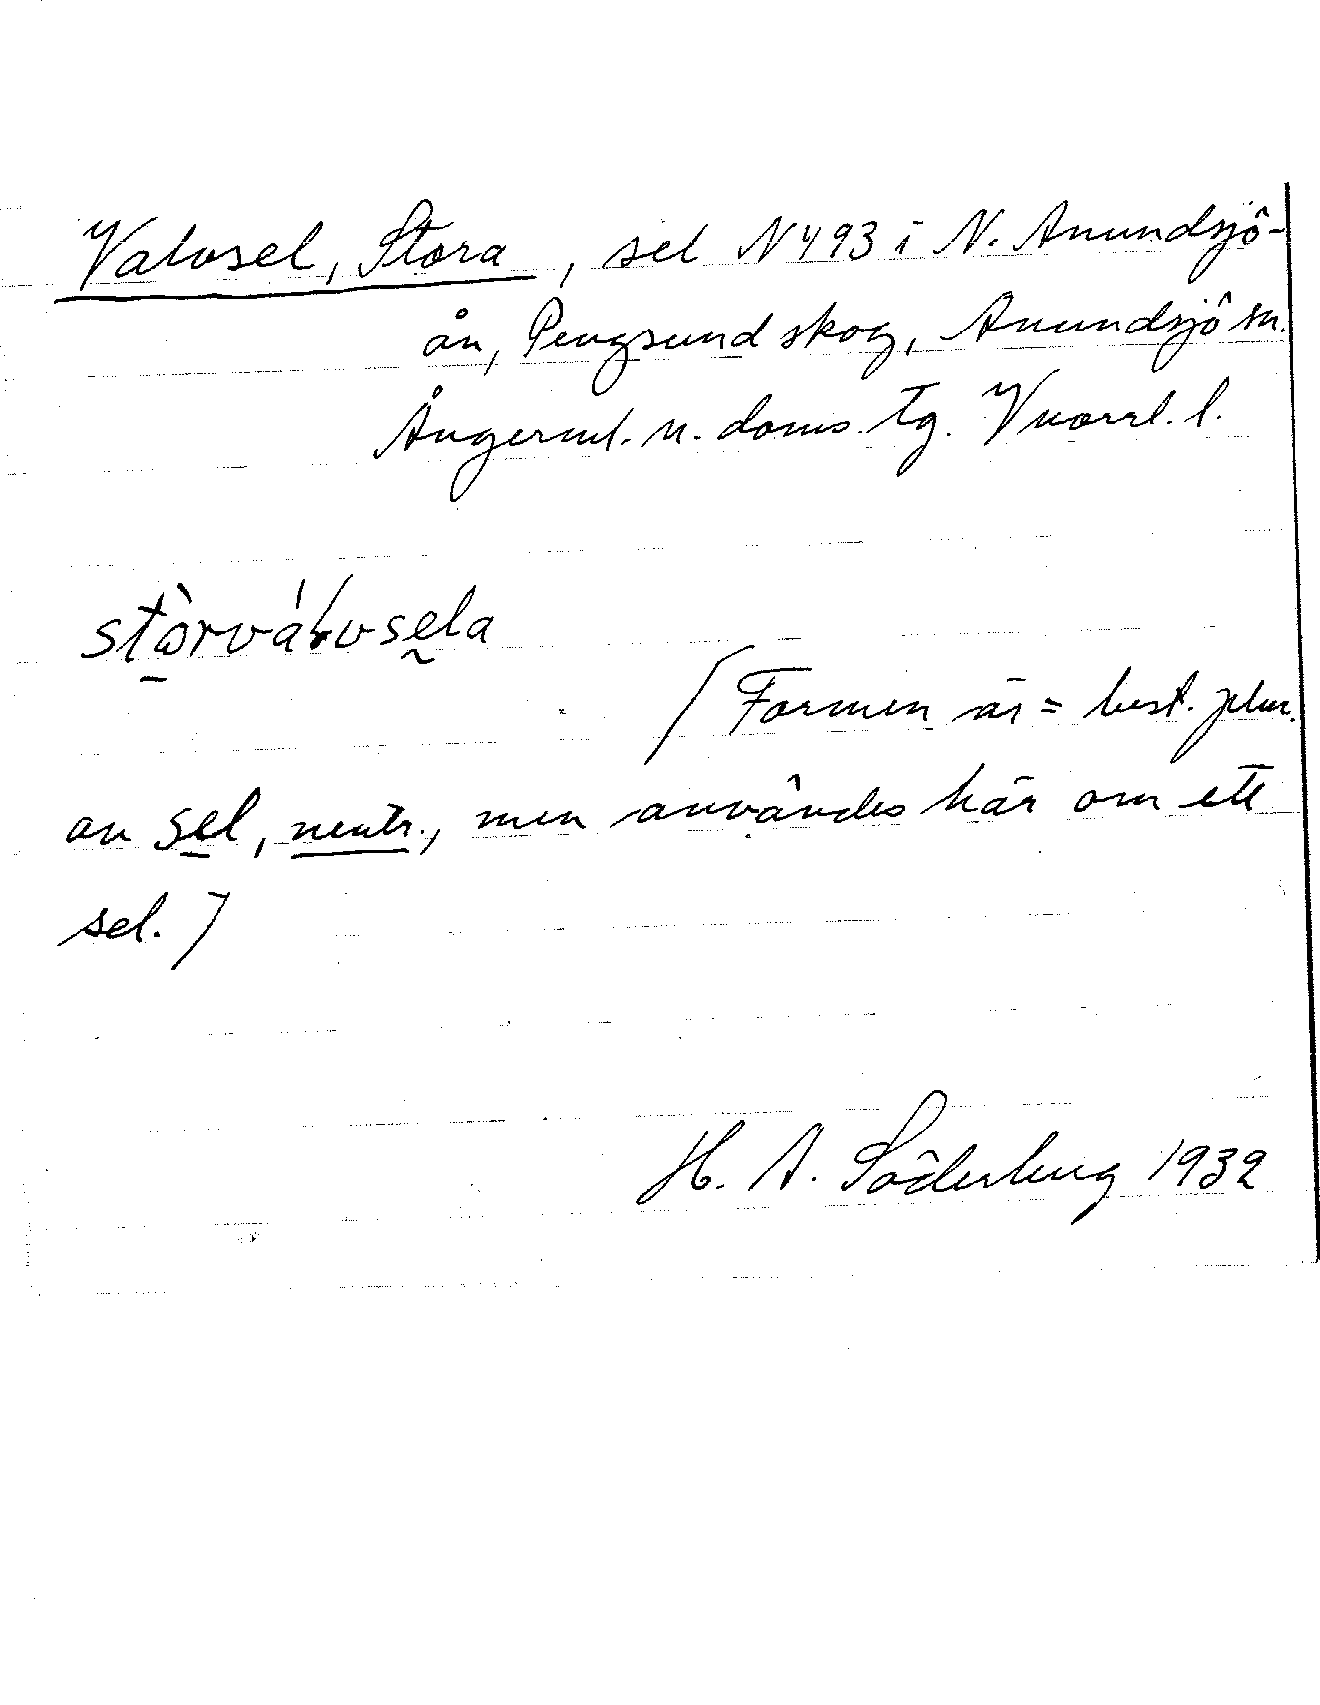 Valvsel, Stora, sel N493 i N. Anundsjö-
ån, Pengsund skog, Anundsjö sn.
Ångerml. n. doms. tg. l.
stòrválvsela
[Formen är = best. plur.
av sel, neutr., men användes här om ett
sel.]
H. A. Söderberg 1932